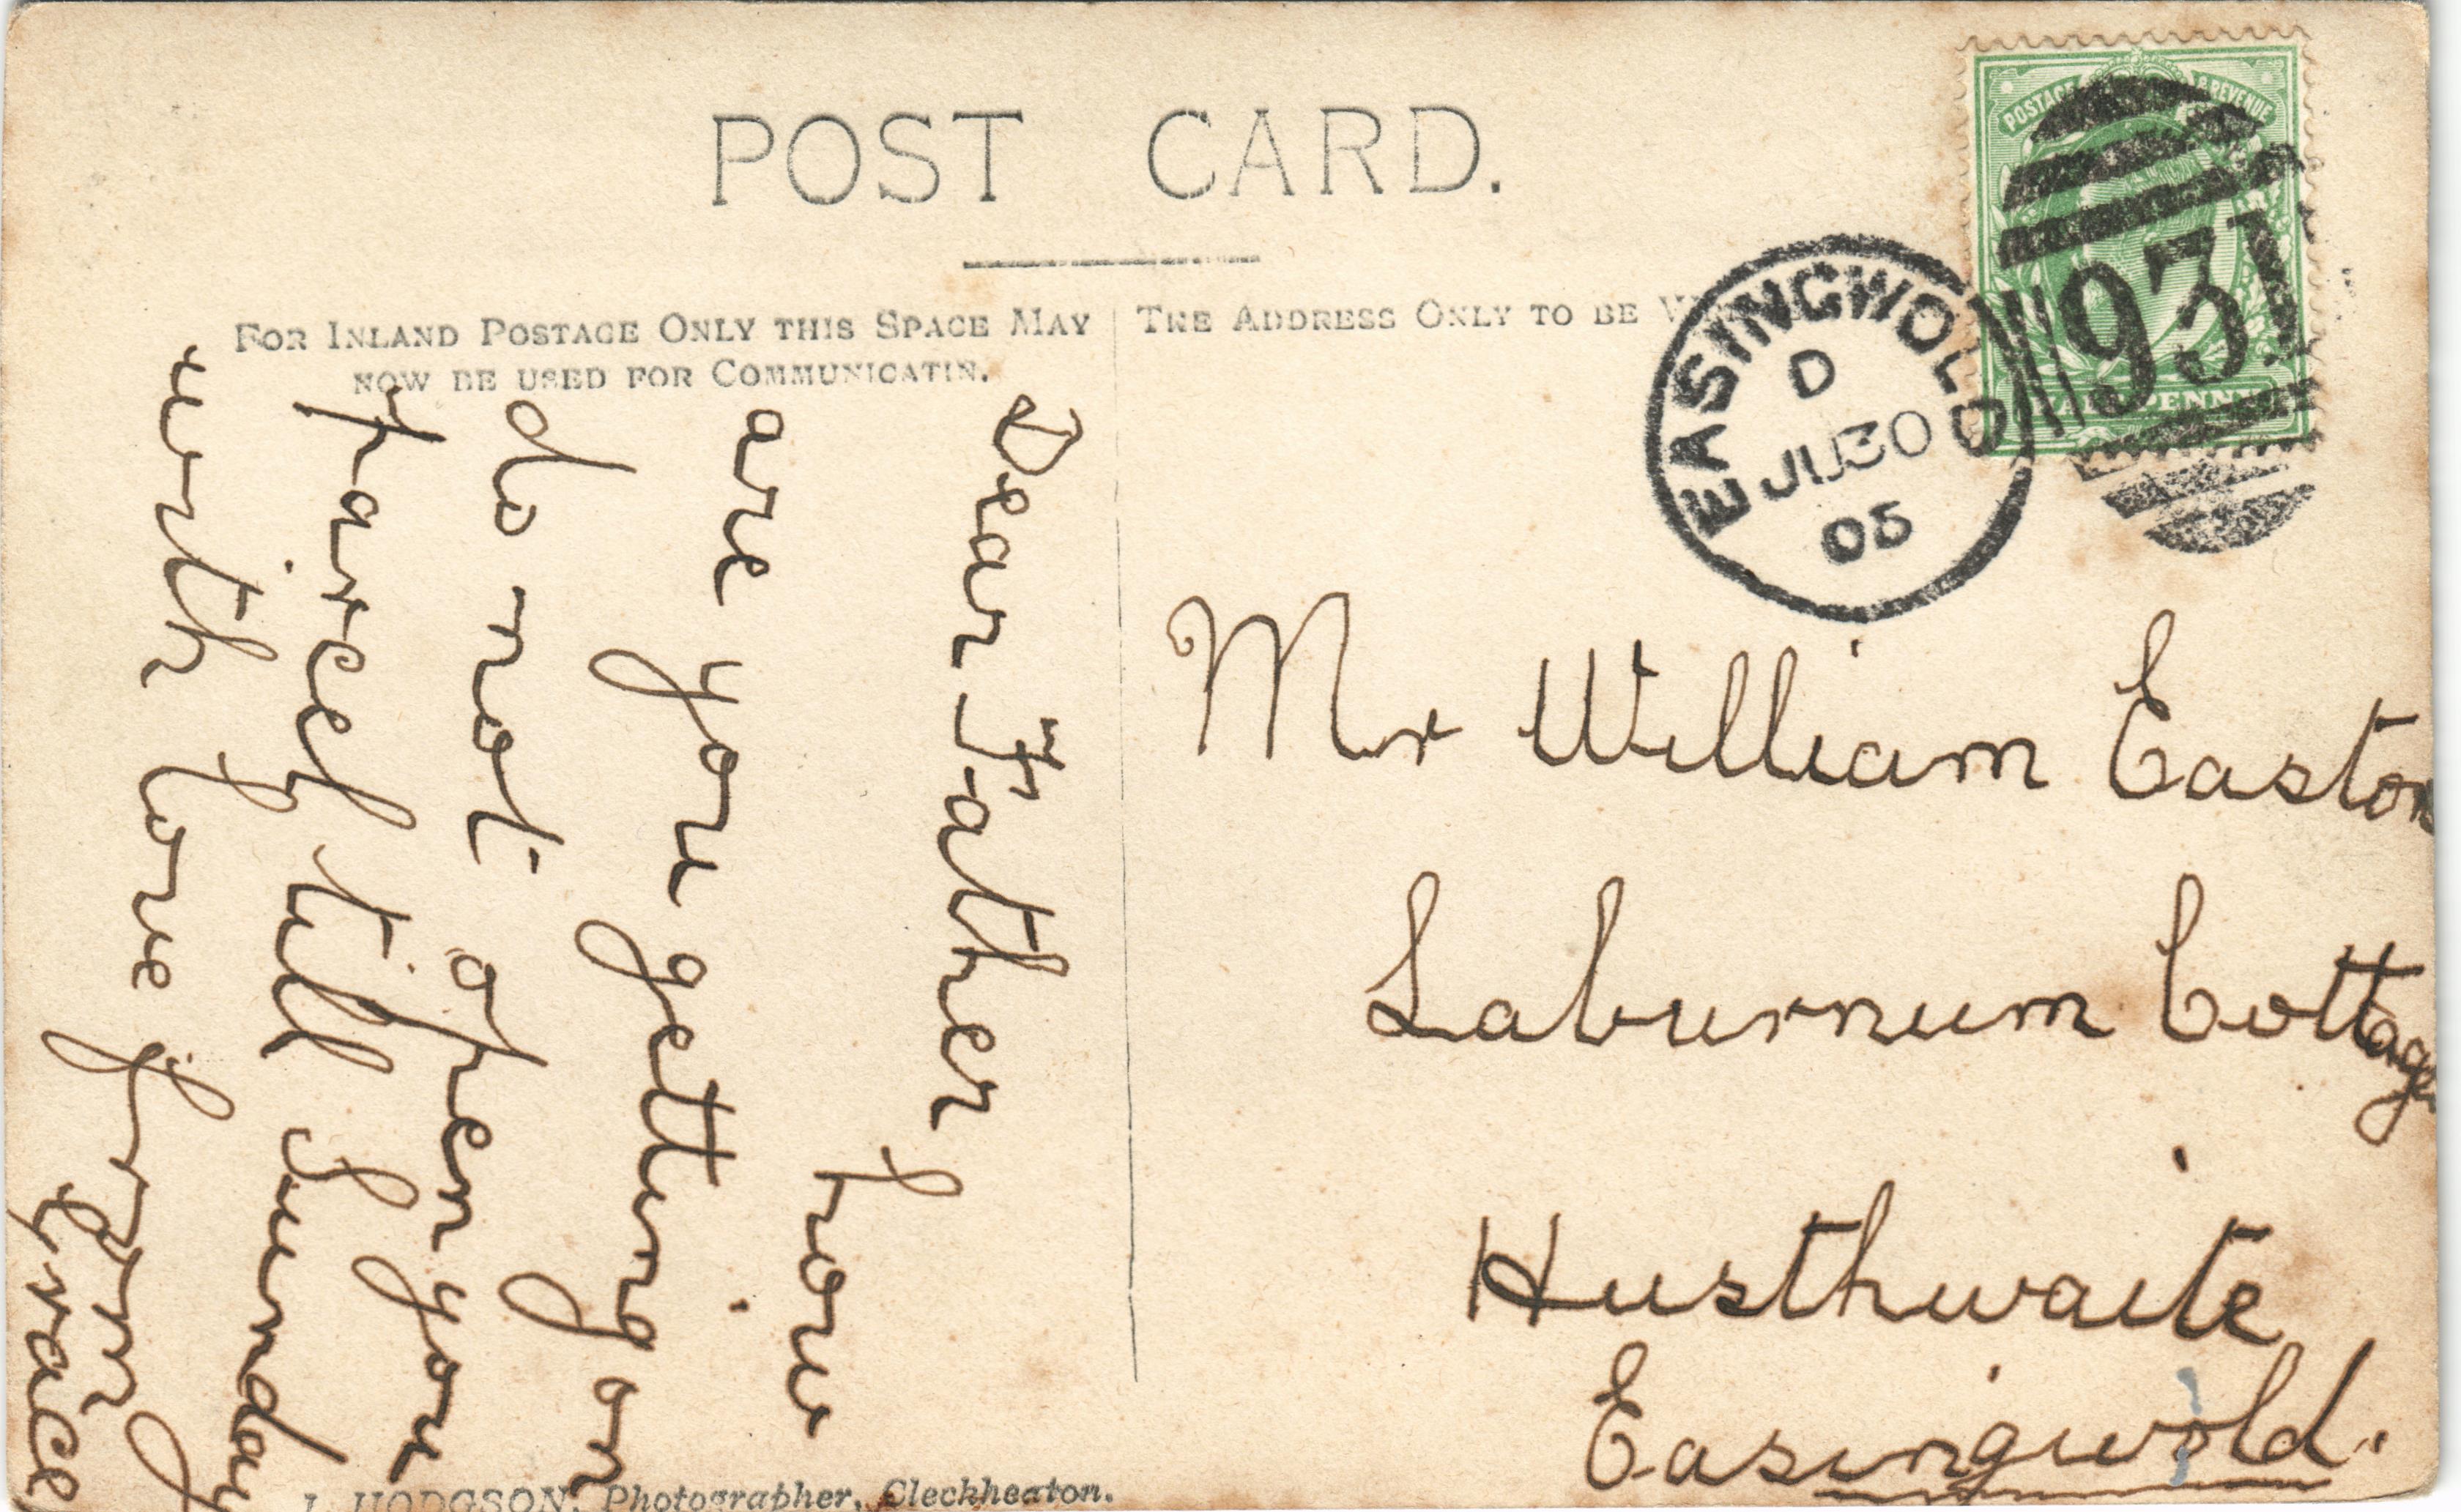 POST CARD.
FOR INLAND POSTAGE ONLY THIS SPACE MAY
NOW BE USED FOR COMMUNICATIN.
THE ADDRESS ONLY TO BE
POSTAGE & REVENUE
HALFPENNY
931
EASINGWOLD
D
JU 30
05
Dear Father how
are you getting on
do not open your
parcel till Sunday
with love from
Grace
Mr William Easton
Laburnum Cottage
Husthwaite
Easingwold.
J. HODGSON, Photographer, Cleckheaton.